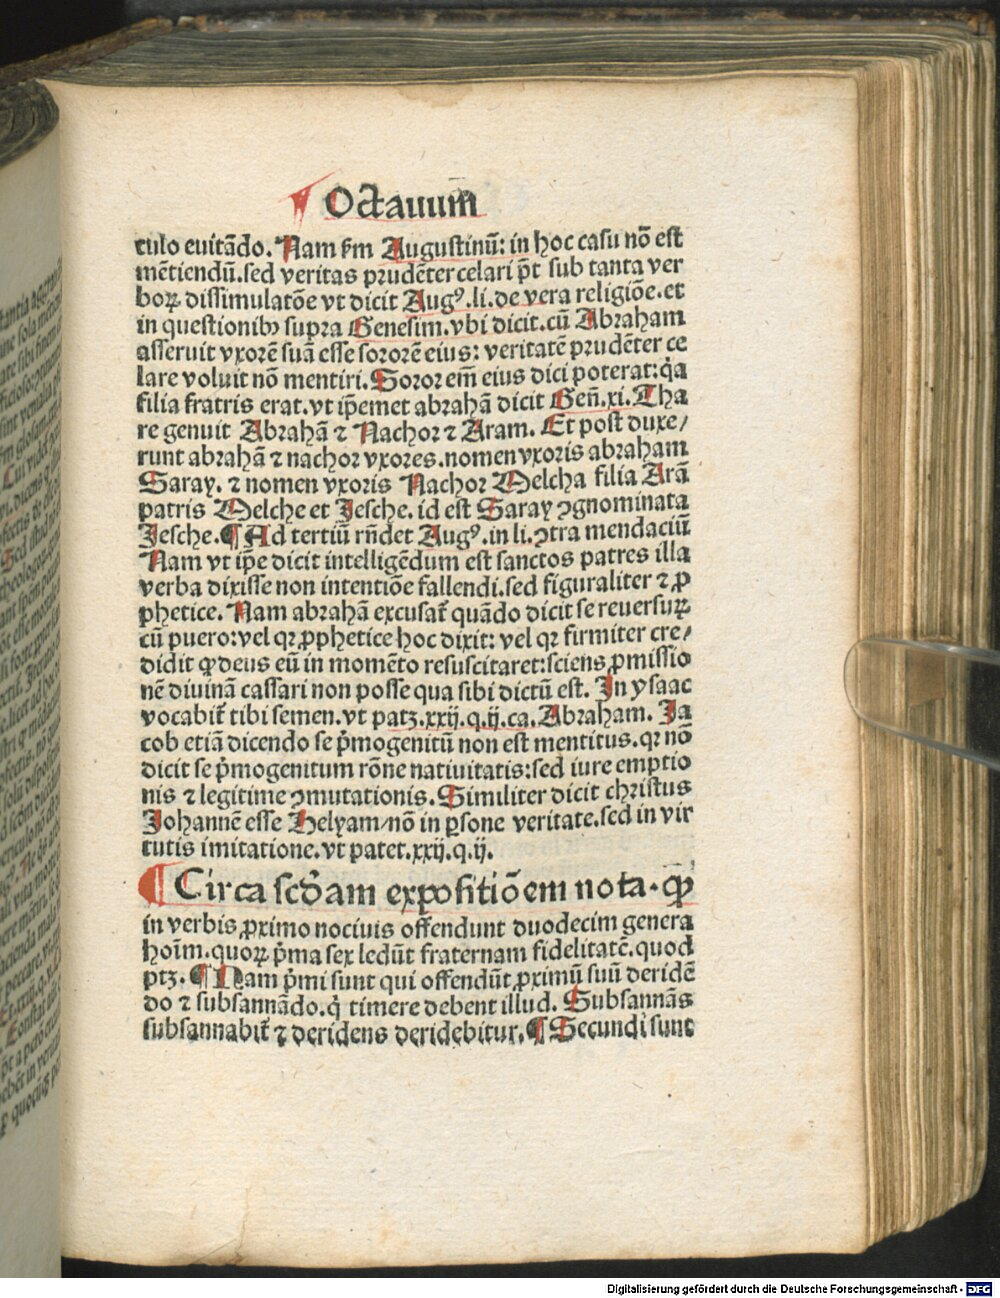 ¶ Octauum̄
culo euitādo. Nam ẜm Augustinū: in hoc casu nō est
mētiendū. sed veritas prudēter celari p̄t sub tanta ver
boꝝ dissimulatōe vt dicit Augꝰ. li. de vera religiōe. et
in questionibꝫ supra Genesim. vbi dicit. cū Abraham
asseruit vxorē suā esse sororē eius: veritatē prudēter ce
lare voluit nō mentiri. Soror em̄ eius dici poterat: q̇a
filia fratris erat. vt ip̄emet abrahā dicit Gen̄. xi. Tha
re genuit Abrahā ⁊ Nachor ⁊ Aram. Et post duxe/
runt abrahā ⁊ nachor vxores. nomen vxoris abraham
Saray. ⁊ nomen vxoris Nachor Melcha filia Arā
patris Melche et Jesche. id est Saray ꝯgnominata
Jesche. ¶ Ad tertiū rn̄det Augꝰ. in li. ꝯtra mendaciū
Nam vt ip̄e dicit intelligēdum est sanctos patres illa
verba dixisse non intentiōe fallendi. sed figuraliter ⁊ ꝓ
phetice. Nam abrahā excusat̄ quādo dicit se reuersuꝝ
cū puero: vel qꝛ ꝓphetice hoc dixit: vel qꝛ firmiter cre/
didit ꝙ deus eū in momēto resuscitaret: sciens ꝓmissio
nē diuinā cassari non posse qua sibi dictū est. In ysaac
vocabit̄ tibi semen. vt patꝫ. xxij. q. ij. ca. Abraham. Ja
cob etiā dicendo se p̄mogenitū non est mentitus. qꝛ nō
dicit se p̄mogenitum rōne natiuitatis: sed iure emptio
nis ⁊ legitime ꝯmutationis. Similiter dicit christus
Johannē esse Helyam/ nō in ꝑsone veritate. sed in vir
tutis imitatione. vt patet. xxij. q. ij.
¶ Circa scd̄am expositiōem nota. ꝙ
in verbis ꝓximo nociuis offendunt duodecim genera
hoīm. quoꝝ p̄ma sex ledūt fraternam fidelitatē. quod
ptꝫ. ¶ Nam p̄mi sunt qui offendūt ꝓximū suū deridē
do ⁊ subsannādo. q̇ timere debent illud. Subsannās
subsannabit̄ ⁊ deridens deridebitur. ¶ Secundi sunt
Digitalisierung gefördert durch die Deutsche Forschungsgemeinschaft - DFG